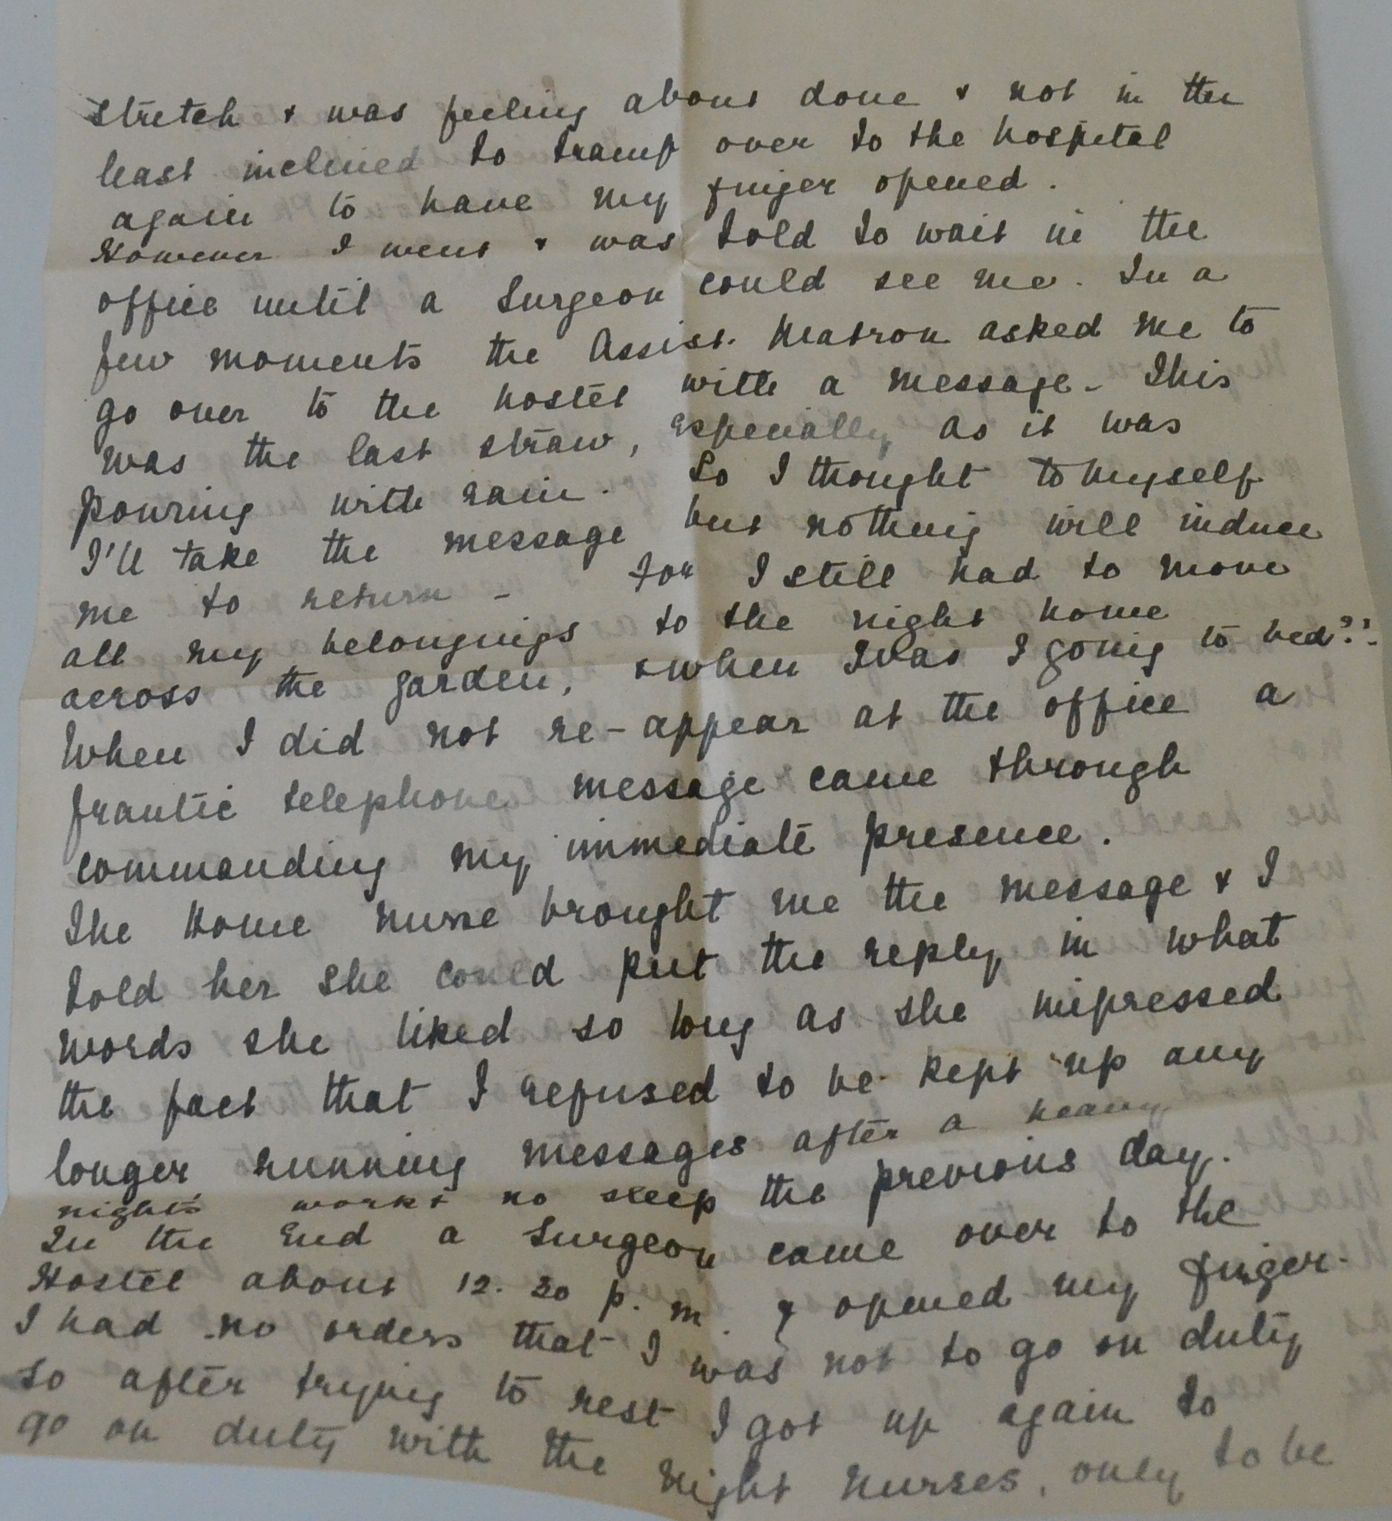 stretch & was feeling about done & not in the
least inclined to tramp over to the hospital
again to have my finger opened.
However I went & was told to wait in the
office until a Surgeon could see me. In a
few moments the Assist. Matron asked me to
go over to the hostel with a message - This
was the last straw, especially as it was
pouring with rain. So I thought to myself
I'll take the message but nothing will induce
me to return - For I still had to move
all my belongings to the night home
across the garden, & when was I going to bed??
When I did not re-appear at the office a
frantic telephone message came through
commanding my immediate presence.
The Home nurse brought me the message & I
told her she could put the reply in what
words she liked so long as she impressed
the fact that I refused to be kept up any
longer running messages after a heavy
nights work & no sleep the previous day.
In the End a Surgeon came over to the
Hostel about 12.20 p.m. & opened my finger.
I had no orders that I was not to go on duty
so after trying to rest I got up again to
go on duty with the night nurses, only to be